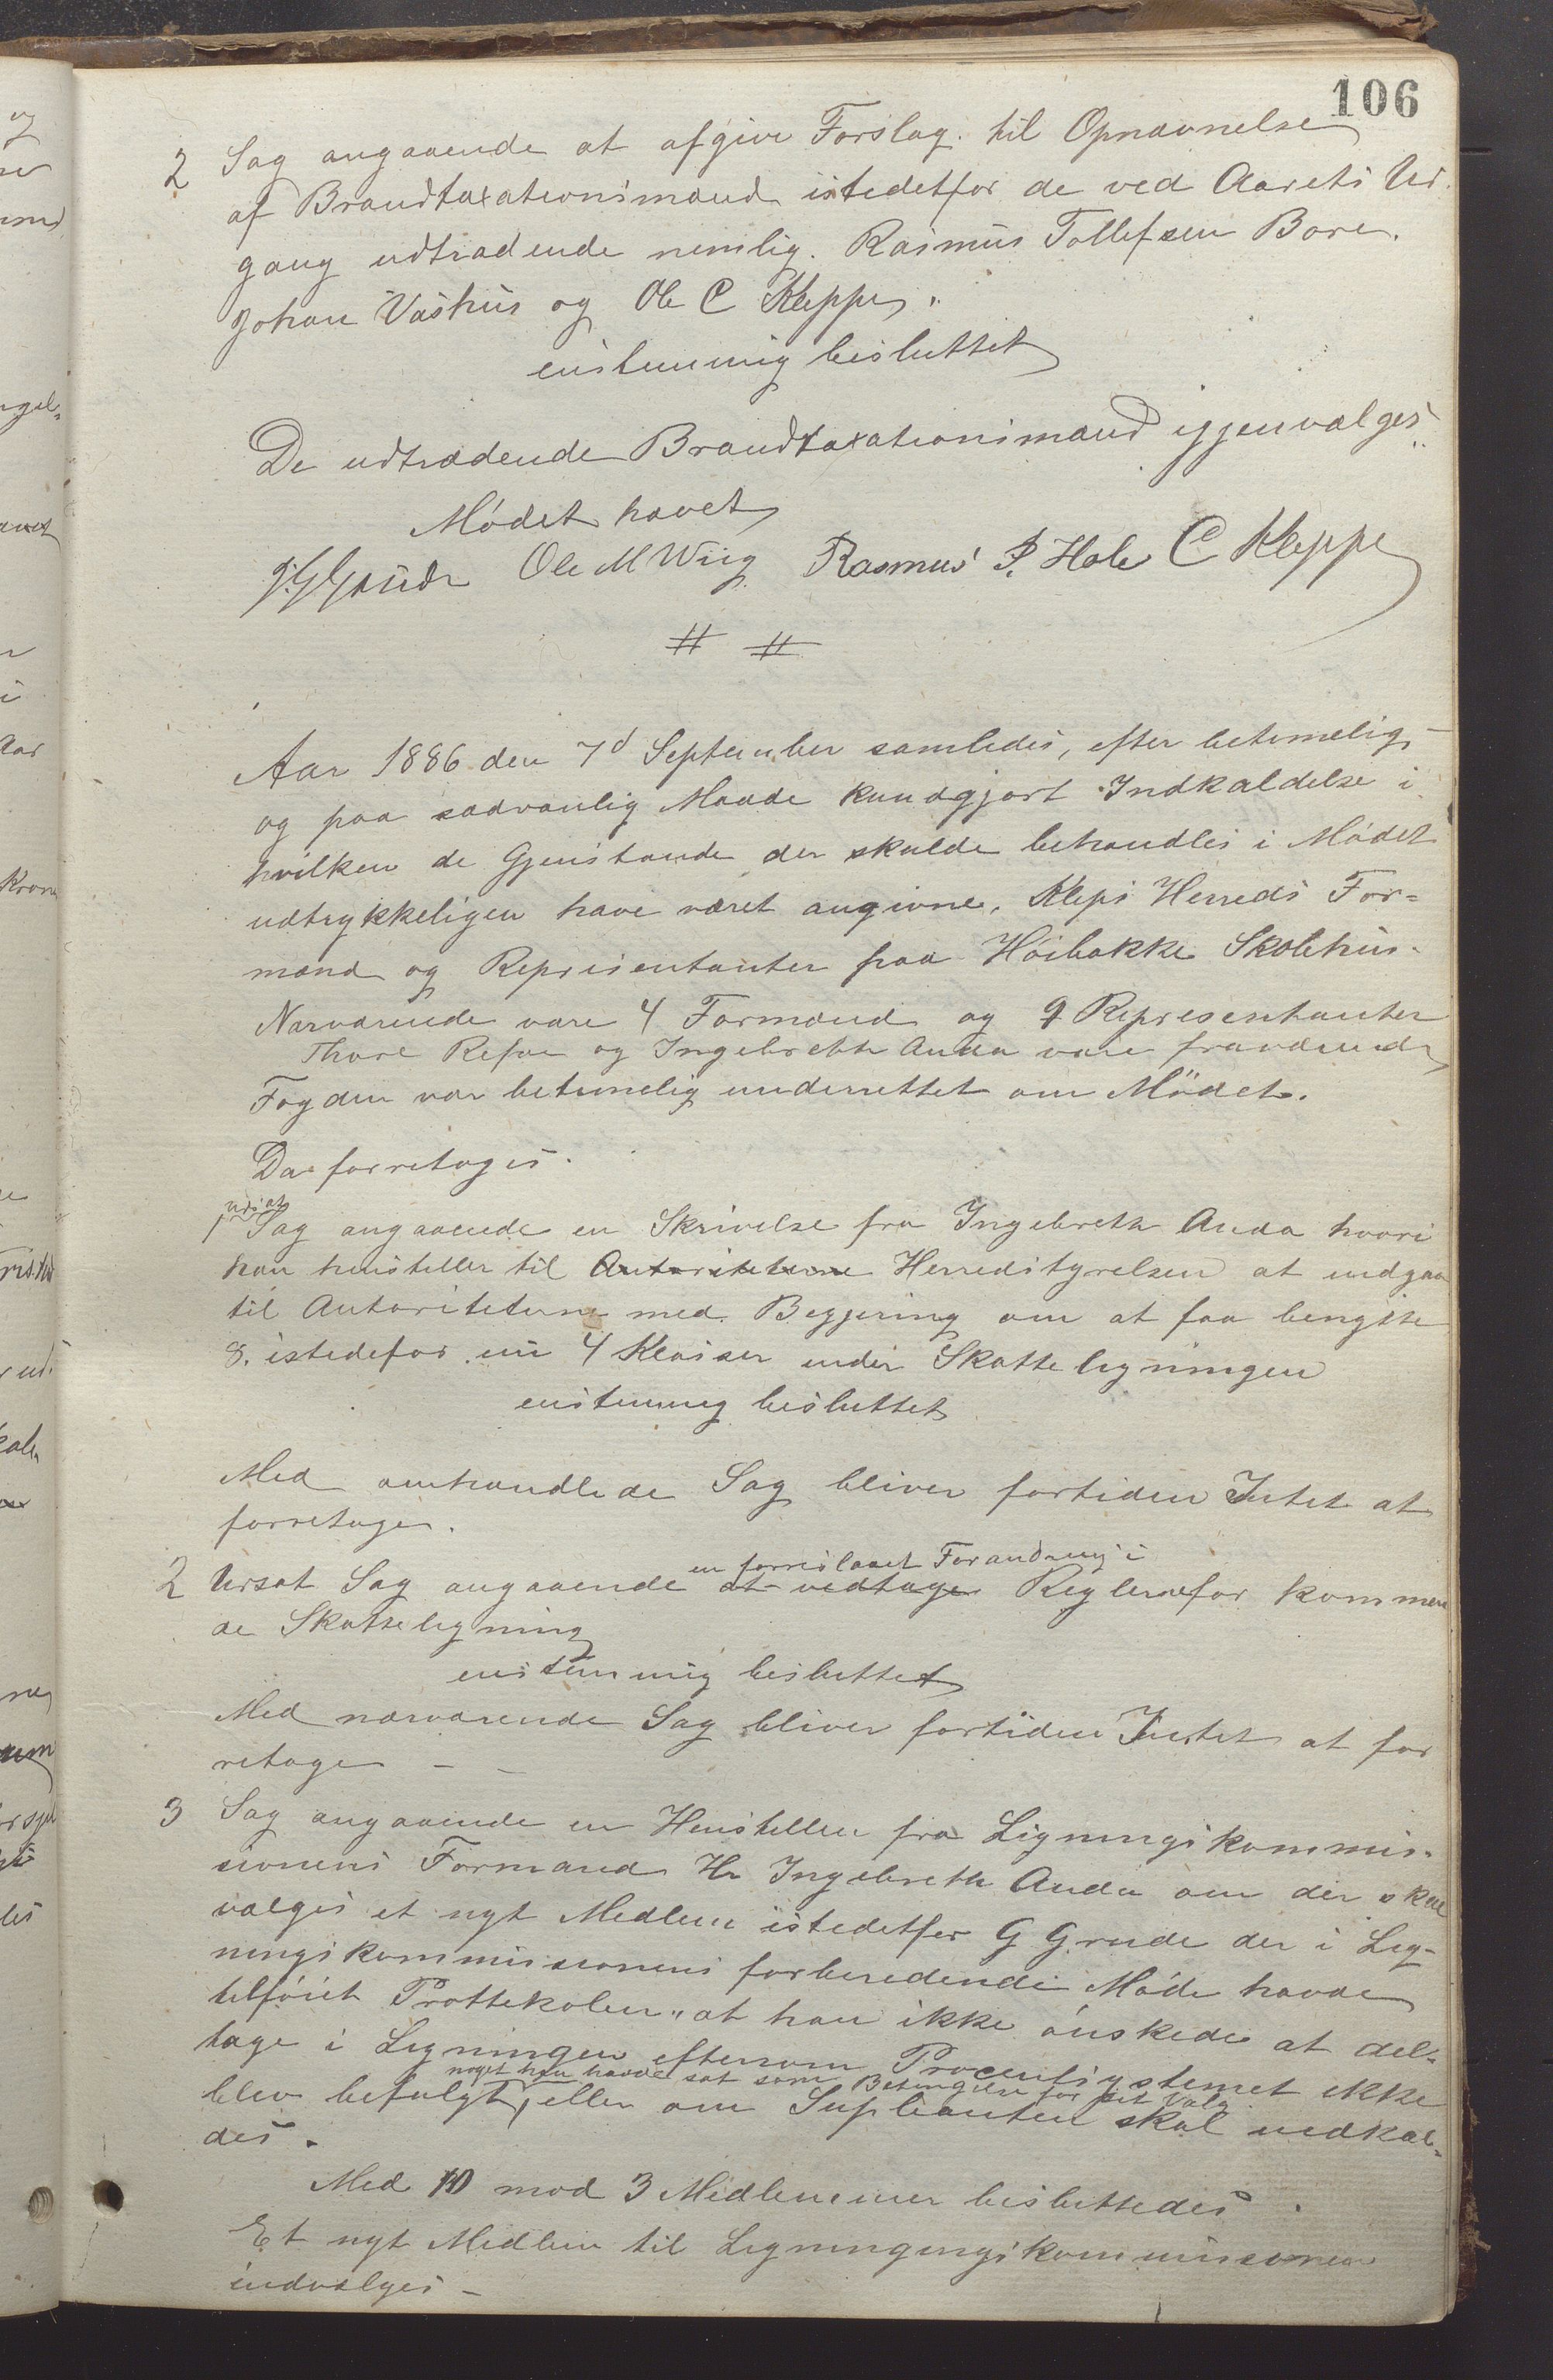 106
2 Sag angaaende at afgive Forslag til Opnævnelse
af Brandtaxationsmænd istedetfor de ved Aarets Ud-
gang udtrædende nemlig. Rasmus Tollefsen Bore.
Johan Vashus og Ole C Kleppe.
enstemmig besluttet
De udtrædende Brandtaxationsmænd igjenvælges
Mødet hævet
G. G. Grude Ole M Wiig Rasmus P. Hole C Kleppe
# #
Aar 1886 den 7d September samledes, efter betimelig
og paa sædvanlig Maade kundgjort Indkaldelse i
hvilken de Gjenstande der skulde behandles i Mødet
udtrykkeligen have været angivne, Kleps Herreds For=
mænd og Repræsentanter paa Høibakke Skolehus.
Nærværende vare 4 Formænd og 9 Representanter
Thore Refve og Ingebreth Anda vare fraværende
Fogden var betimelig underrettet om Mødet.
Da foretoges.
1 udsat Sag angaaende en Skrivelse fra Ingebreth Anda hvori
han henstiller til Autoriteterne Herredstyrelsen at indgaa
til Autoriteterne med Begjering om at faa benytte
8. istedefor nu 4 Klasser under Skatteligningen
enstemmig besluttet
Med omhandlede Sag bliver fortiden Intet at
forretage.
en forreslaaet Forandring i
2 Udsat Sag angaaende at vedtage Reglerne for kommen
de Skatteligning
enstemmig besluttet
Med nærværende Sag bliver fortiden Intet at for
retage - -
3 Sag angaaende en Henstillen fra Ligningskommis-
sionens Formand Hr Ingebreth Anda om der skal
vælges et nyt Medlem istedetfor G Grude der i Lig-
ningskommissionens forberedende Møde havde
tilføiet Prottekolen, at han ikke ønskede at del-
tage i Ligningen eftersom Procentsystemet ikke
noget han havde sat som Betingelse for sit Valg
blev befulgt, eller om Supleanten skal indkal-
des.
Med 10 mod 3 Medlemmer besluttedes
Et nyt Medlem til Ligningingskommissionen
indvælges -